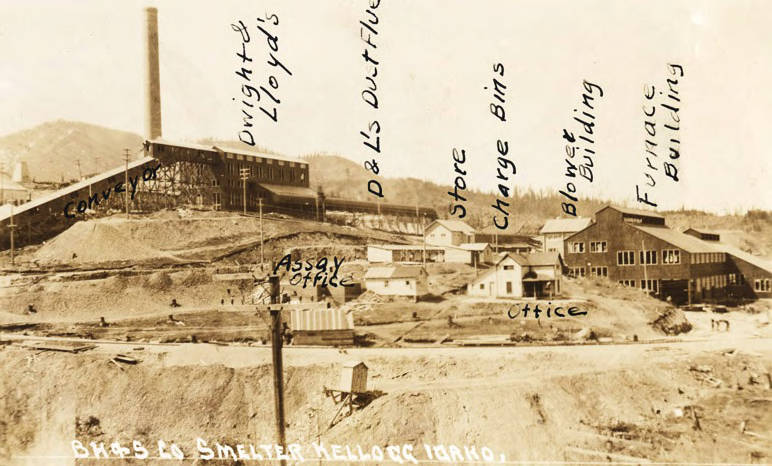 Dwight &
Lloyd's
D & L's Duct Flue
Store
Charge Bins
Blower
Building
Furnace
Building
Conveyor
Assay
Office
Office
BH&S CO SMELTER KELLOGG IDAHO.